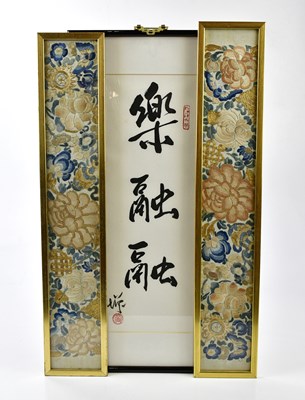 樂融融